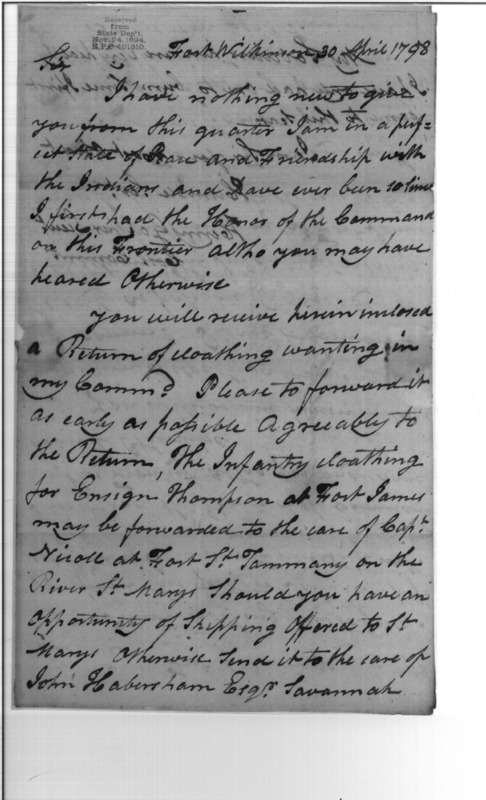 Received
from
State Dep't.
Nov. 24, 1894.
R.P.O 401310
Fort Wilkinson, 30 April 1798
Sir
I have nothing new to give
you from this quarter I am in a perf=
ect State of Peace and Friendship with
the Indians and have ever been so since
I first had the Honor of the Command
on this Frontier altho you may have
heared Otherwise
you will receive herein inclosed
a Return of cloathing wanting in
my Commd. Please to forward it
as early as possible Agreeably to
the Return, The Infantry cloathing
for Ensign Thompson at Fort James
may be forwarded to the care of Capt.
Nicoll at Fort St. Tammany on the
River St Marys Should you have an
Opportunity of Shipping Offered to St
Marys Otherwise Send it to the care of
John Habersham Esqr. Savannah